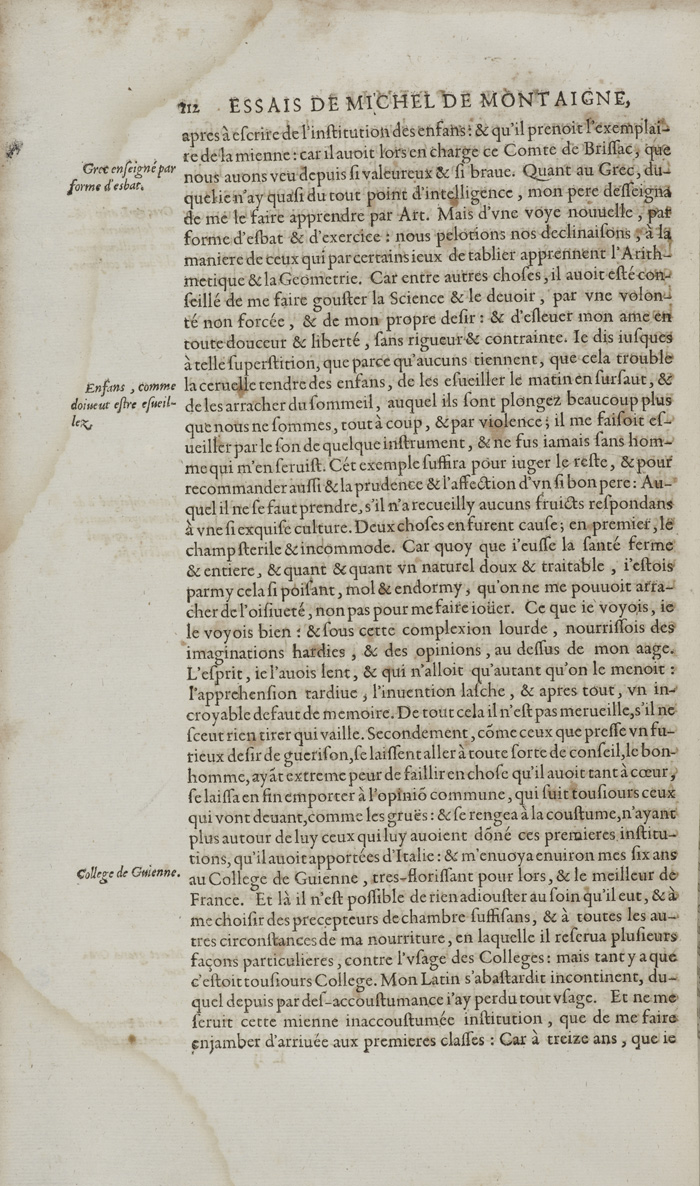 112 ESSAIS DE MICHEL DE MONTAIGNE,
apres à escrire de l'institution des enfans: & qu'il prenoit l'exemplai-
re de la mienne: car il auoit lors en charge ce Comte de Brissac, que
Grec enseigné par
forme d'esbat.
nous auons veu depuis si valeureux & si braue. Quant au Grec, du-
quel ie n'ay quasi du tout point d'intelligence, mon pere desseigna
de me le faire apprendre par Art. Mais d'vne voye nouuelle, par
forme d'esbat & d'exercice: nous pelotions nos declinaisons, à la
maniere de ceux qui par certains ieux de tablier apprennent l'Arith-
metique & la Geometrie. Car entre autres choses, il auoit esté con-
seillé de me faire gouster la Science & le deuoir, par vne volon-
té non forcée, & de mon propre desir: & d'esleuer mon ame en
toute douceur & liberté, sans rigueur & contrainte. Ie dis iusques
à telle superstition, que parce qu'aucuns tiennent, que cela trouble
Enfans, comme
doiuent estre esueil-
lez.
la ceruelle tendre des enfans, de les esueiller le matin en sursaut, &
de les arracher du sommeil, auquel ils sont plongez beaucoup plus
que nous ne sommes, tout à coup, & par violence; il me faisoit es-
ueiller par le son de quelque instrument, & ne fus iamais sans hom-
me qui m'en seruist. Cét exemple suffira pour iuger le reste, & pour
recommander aussi & la prudence & l'affection d'vn si bon pere: Au-
quel il ne se faut prendre, s'il n'a recueilly aucuns fruicts respondans
à vne si exquise culture. Deux choses en furent cause; en premier, le
champ sterile & incommode. Car quoy que i'eusse la santé ferme
& entiere, & quant & quant vn naturel doux & traitable, i'estois
parmy cela si poisant, mol & endormy, qu'on ne me pouuoit arra-
cher de l'oisiueté, non pas pour me faire ioüer. Ce que ie voyois, ie
le voyois bien: & sous cette complexion lourde, nourrissois des
imaginations hardies, & des opinions, au dessus de mon aage.
L'esprit, ie l'auois lent, & qui n'alloit qu'autant qu'on le menoit:
l'apprehension tardiue, l'inuention lasche, & apres tout, vn in-
croyable defaut de memoire. De tout cela il n'est pas merueille, s'il ne
sceut rien tirer qui vaille. Secondement, cõme ceux que presse vn fu-
rieux desir de guerison, se laissent aller à toute sorte de conseil, le bon-
homme, ayãt extreme peur de faillir en chose qu'il auoit tant à cœur,
se laissa en fin emporter à l'opiniõ commune, qui suit tousiours ceux
qui vont deuant, comme les gruës: & se rengea à la coustume, n'ayant
plus autour de luy ceux qui luy auoient dõné ces premieres institu-
tions, qu'il auoit apportées d'Italie: & m'enuoya enuiron mes six ans
College de Guienne.
au College de Guienne, tres-florissant pour lors, & le meilleur de
France. Et là il n'est possible de rien adiouster au soin qu'il eut, & à
me choisir des precepteurs de chambre suffisans, & à toutes les au-
tres circonstances de ma nourriture, en laquelle il reserua plusieurs
façons particulieres, contre l'vsage des Colleges: mais tant y a que
c'estoit tousiours College. Mon Latin s'abastardit incontinent, du-
quel depuis par des-accoustumance i'ay perdu tout vsage. Et ne me
seruit cette mienne inaccoustumée institution, que de me faire
enjamber d'arriuée aux premieres classes: Car à treize ans, que ie